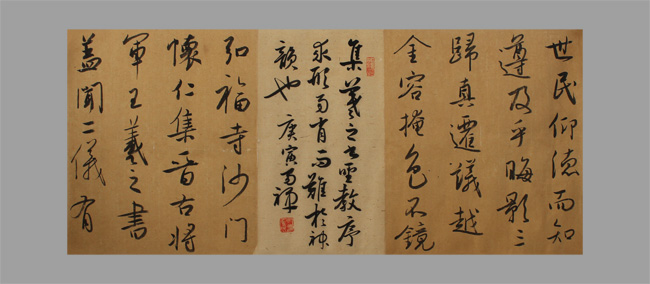 世民仰德而知
遵及乎晦影三
歸真遷議越
金容掩色不鏡
集羲之書聖教序
求形易肖而難於神
韻也 庚寅
弘福寺沙门
懷仁集晉右將
軍王羲之書
蓋聞二儀有